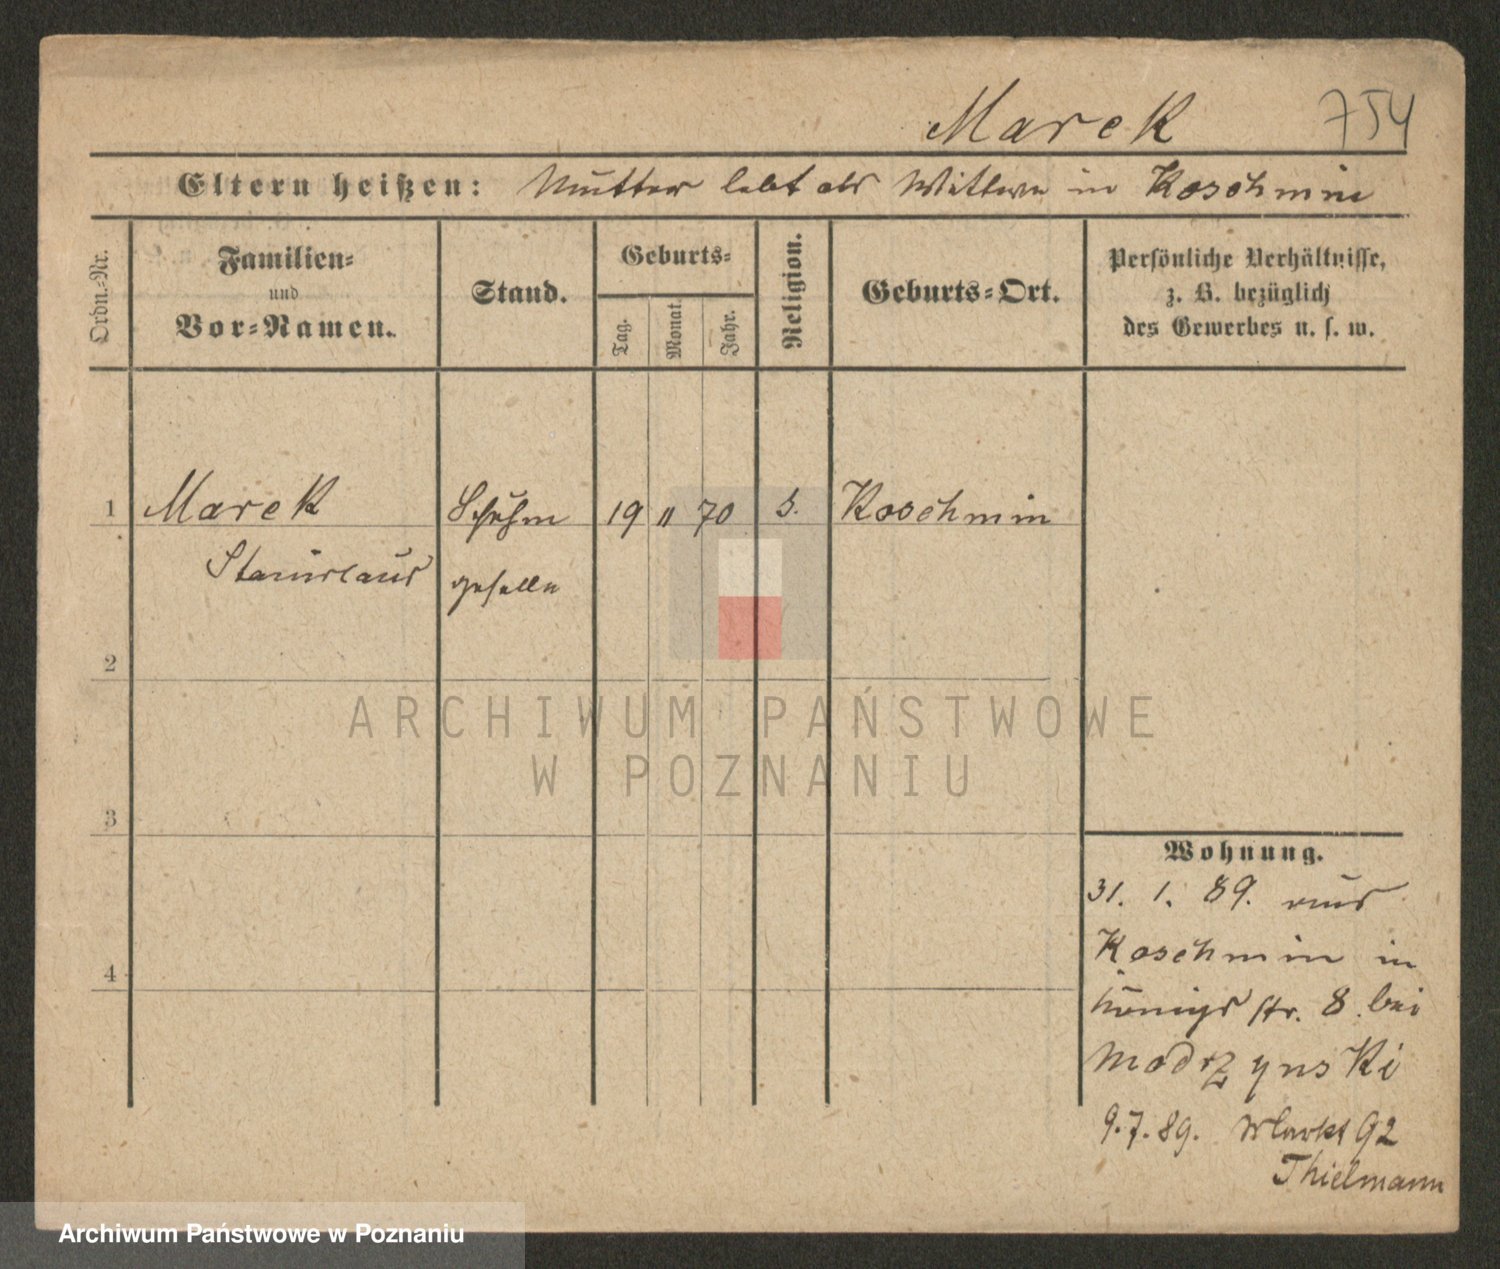 Marek 754
Eltern heißen: Mutter lebt als Wittwe in Koschmin
Ordn.-Nr.
Familien-
und
Vor-Namen.
Stand.
Geburts-
Tag.
Monat.
Jahr.
Religion.
Geburts-Ort.
Persönliche Verhältnisse,
z. B. bezüglich
des Gewerbes u. s. w.
1 Marek Schuhm 19 11 70 Koschmin
Stanislaus geselle
2
3
4
ARCHIWUM PAŃSTWOWE
W POZNANIU
Wohnung.
31. 1. 89. aus
Koschmin in
Königs str. 8 bei
Modrzynski
9.7.89. Markt 92
Thielmann
Archiwum Państwowe w Poznaniu